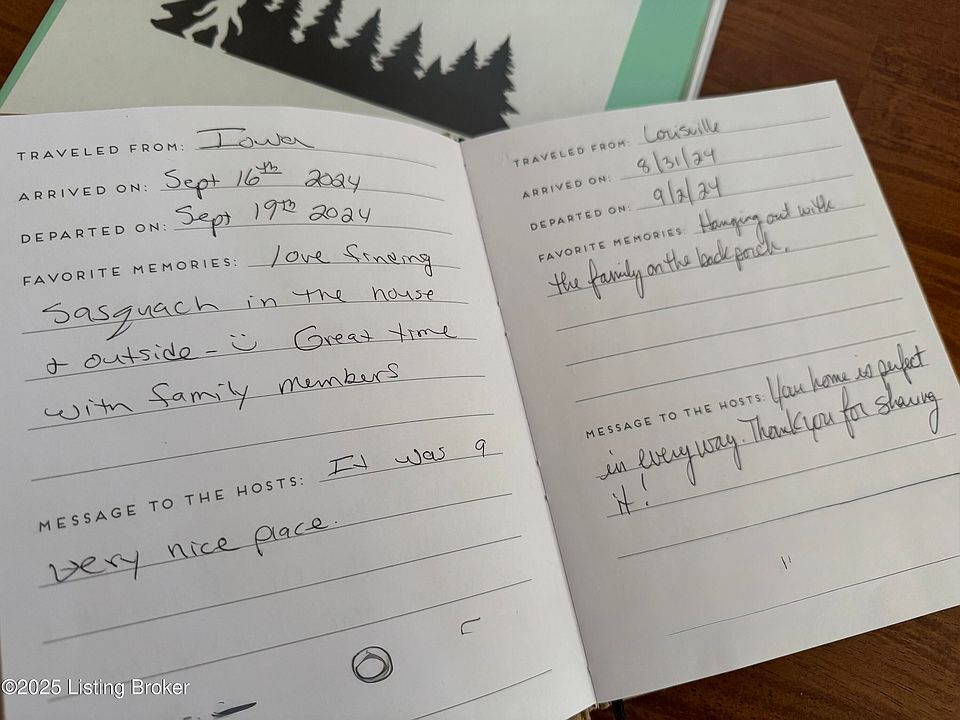 TRAVELED FROM: Iowa
ARRIVED ON: Sept 16th 2024
DEPARTED ON: Sept 19th 2024
FAVORITE MEMORIES: love finding
Sasquach in the house
+ outside - :) Great time
with family members
MESSAGE TO THE HOSTS: It was a
very nice place.
TRAVELED FROM: Lorisville
ARRIVED ON: 8/31/24
DEPARTED ON: 9/2/24
FAVORITE MEMORIES: Hanging out with
the family on the back porch.
MESSAGE TO THE HOSTS: Your home is perfect
in every way. Thank you for sharing
it!
©2025 Listing Broker